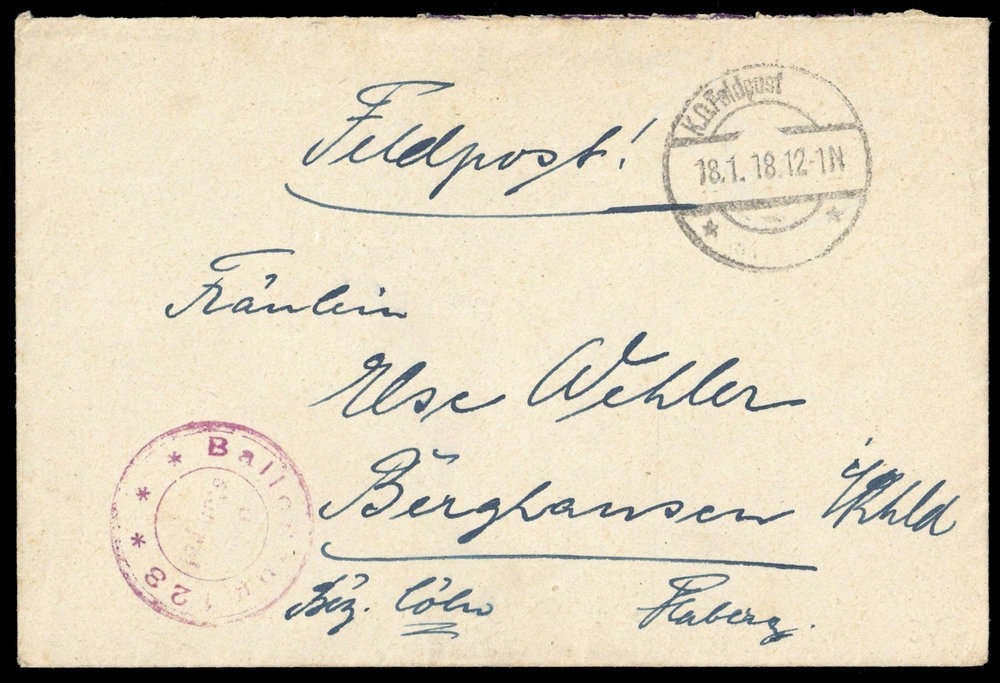 Feldpost!
K.D. Feldpost
18.1.18.12-1N
Fräulein
Else Wehler
Berghausen i/Rhld
Bez. Cöln
* * * Ballonzug 123